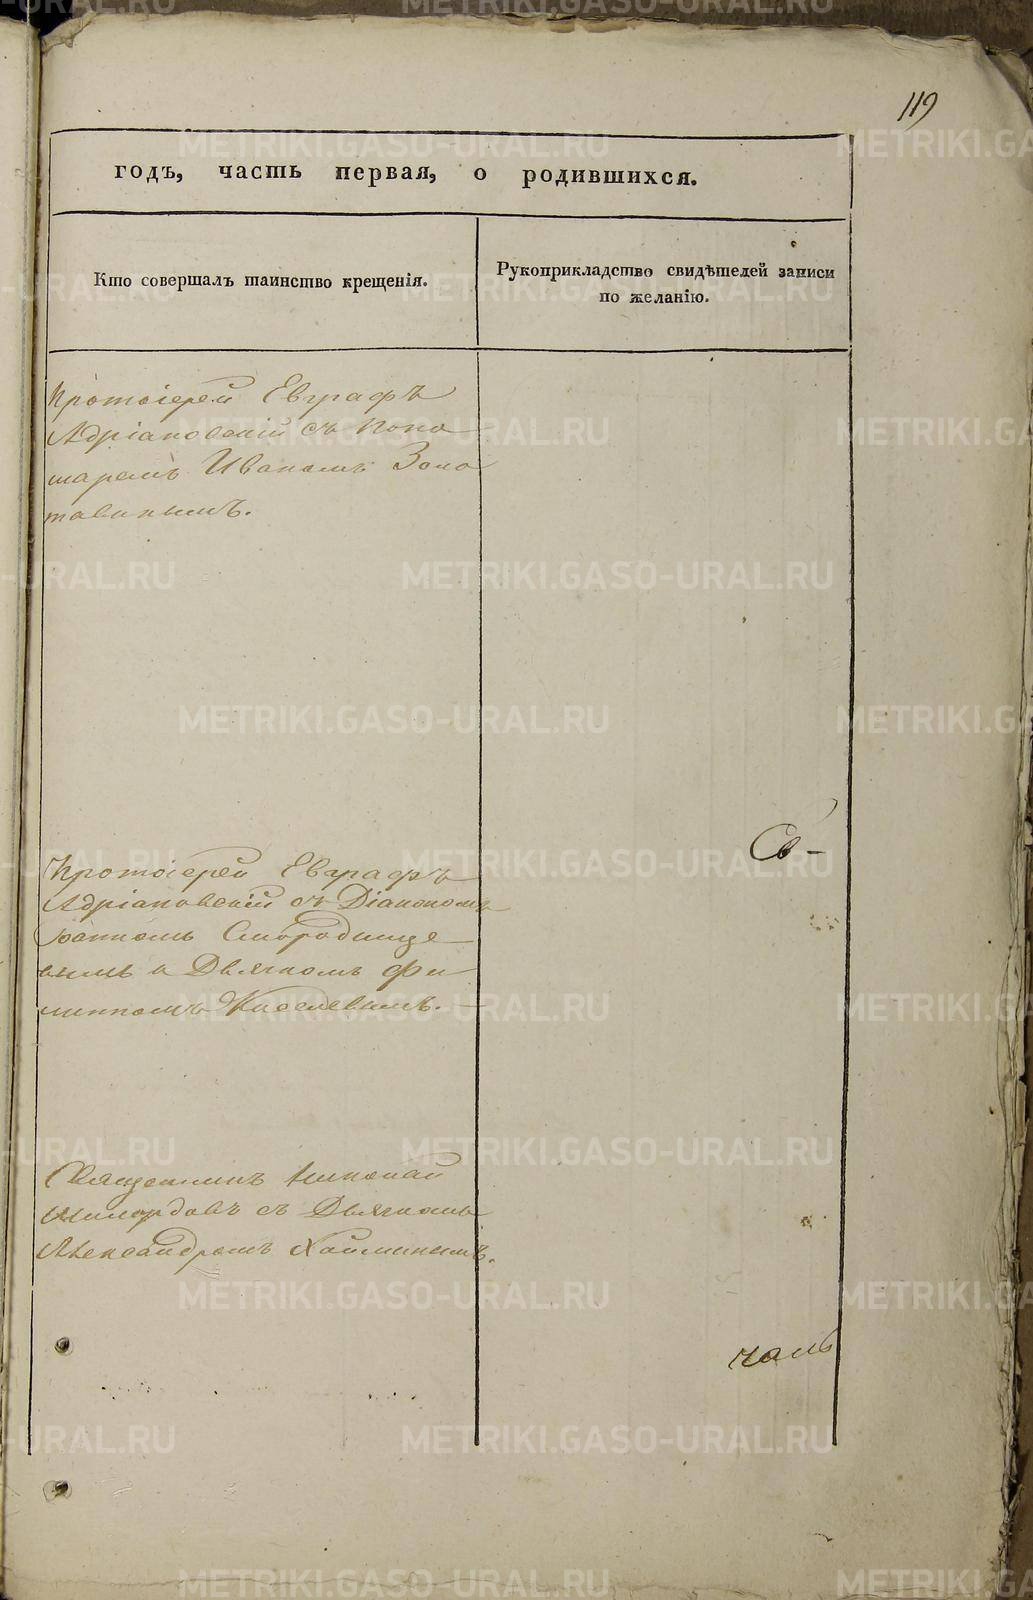 119
годъ, часть первая, о родившихся.
Кто совершалъ таинство крещенія.
Рукоприкладство свидѣтелей записи
по желанію.
Протоіерей Евграфъ
Адріановскій съ Поно
маремъ Иваномъ Золо
тавинымъ.
Протоіерей Евграфъ
Адріановскій съ Діакономъ
Іоанномъ Смородинце
вымъ и Дьячкомъ Фи
липпомъ Киселевымъ.
Священникъ Николай
съ Дьячкомъ
Александромъ
METRIKI.GASO-URAL.RU